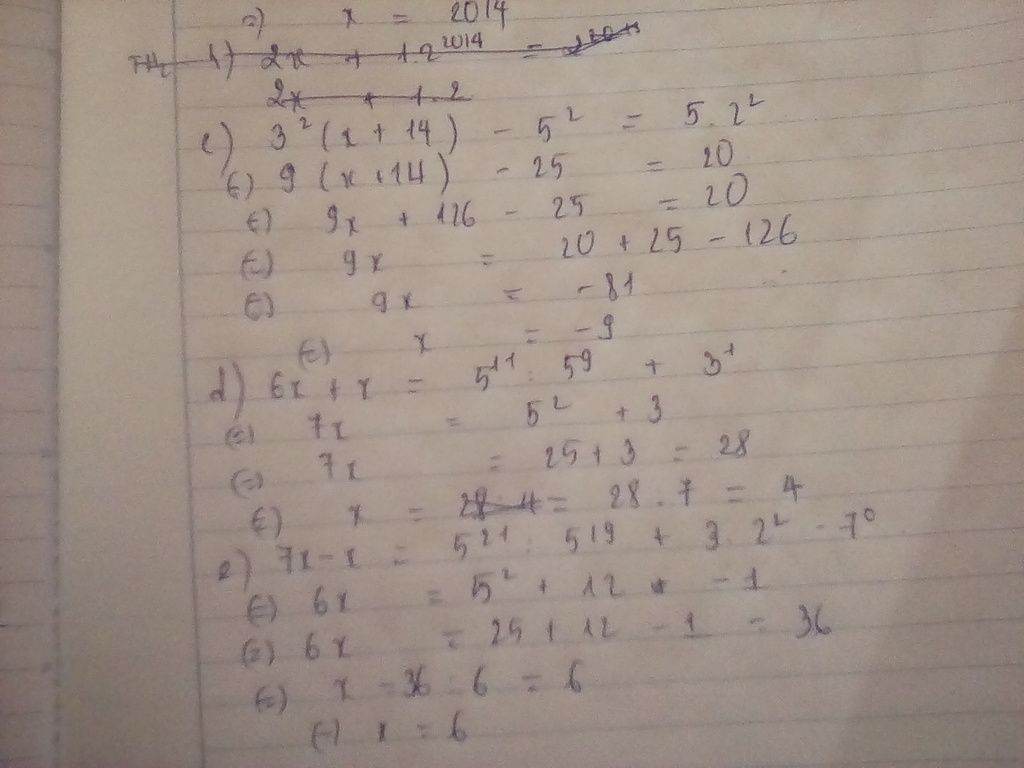 =) x = 2014
b) 2x + 12²⁰¹⁴ =
2x + 1.2
c) 3² (x + 14) - 5² = 5.2²
(=) 9 (x+14) - 25 = 20
(=) 9x + 126 - 25 = 20
(=) 9x = 20 + 25 - 126
(=) 9x = -81
(=) x = -9
d) 6x + x = 5¹¹ : 5⁹ + 3¹
(=) 7x = 5² + 3
(=) 7x = 25 + 3 = 28
(=) x = 28 : 4 = 28 : 7 = 4
e) 7x - x = 5²¹ : 5¹⁹ + 3 . 2² - 7⁰
(=) 6x = 5² + 12 - 1
(=) 6x = 25 + 12 - 1 = 36
(=) x = 36 : 6 = 6
(=) x = 6